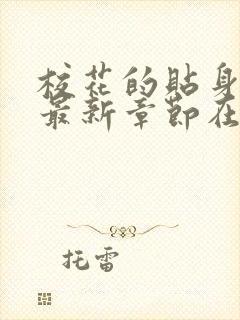 校花的贴身
最新章節在
托雷